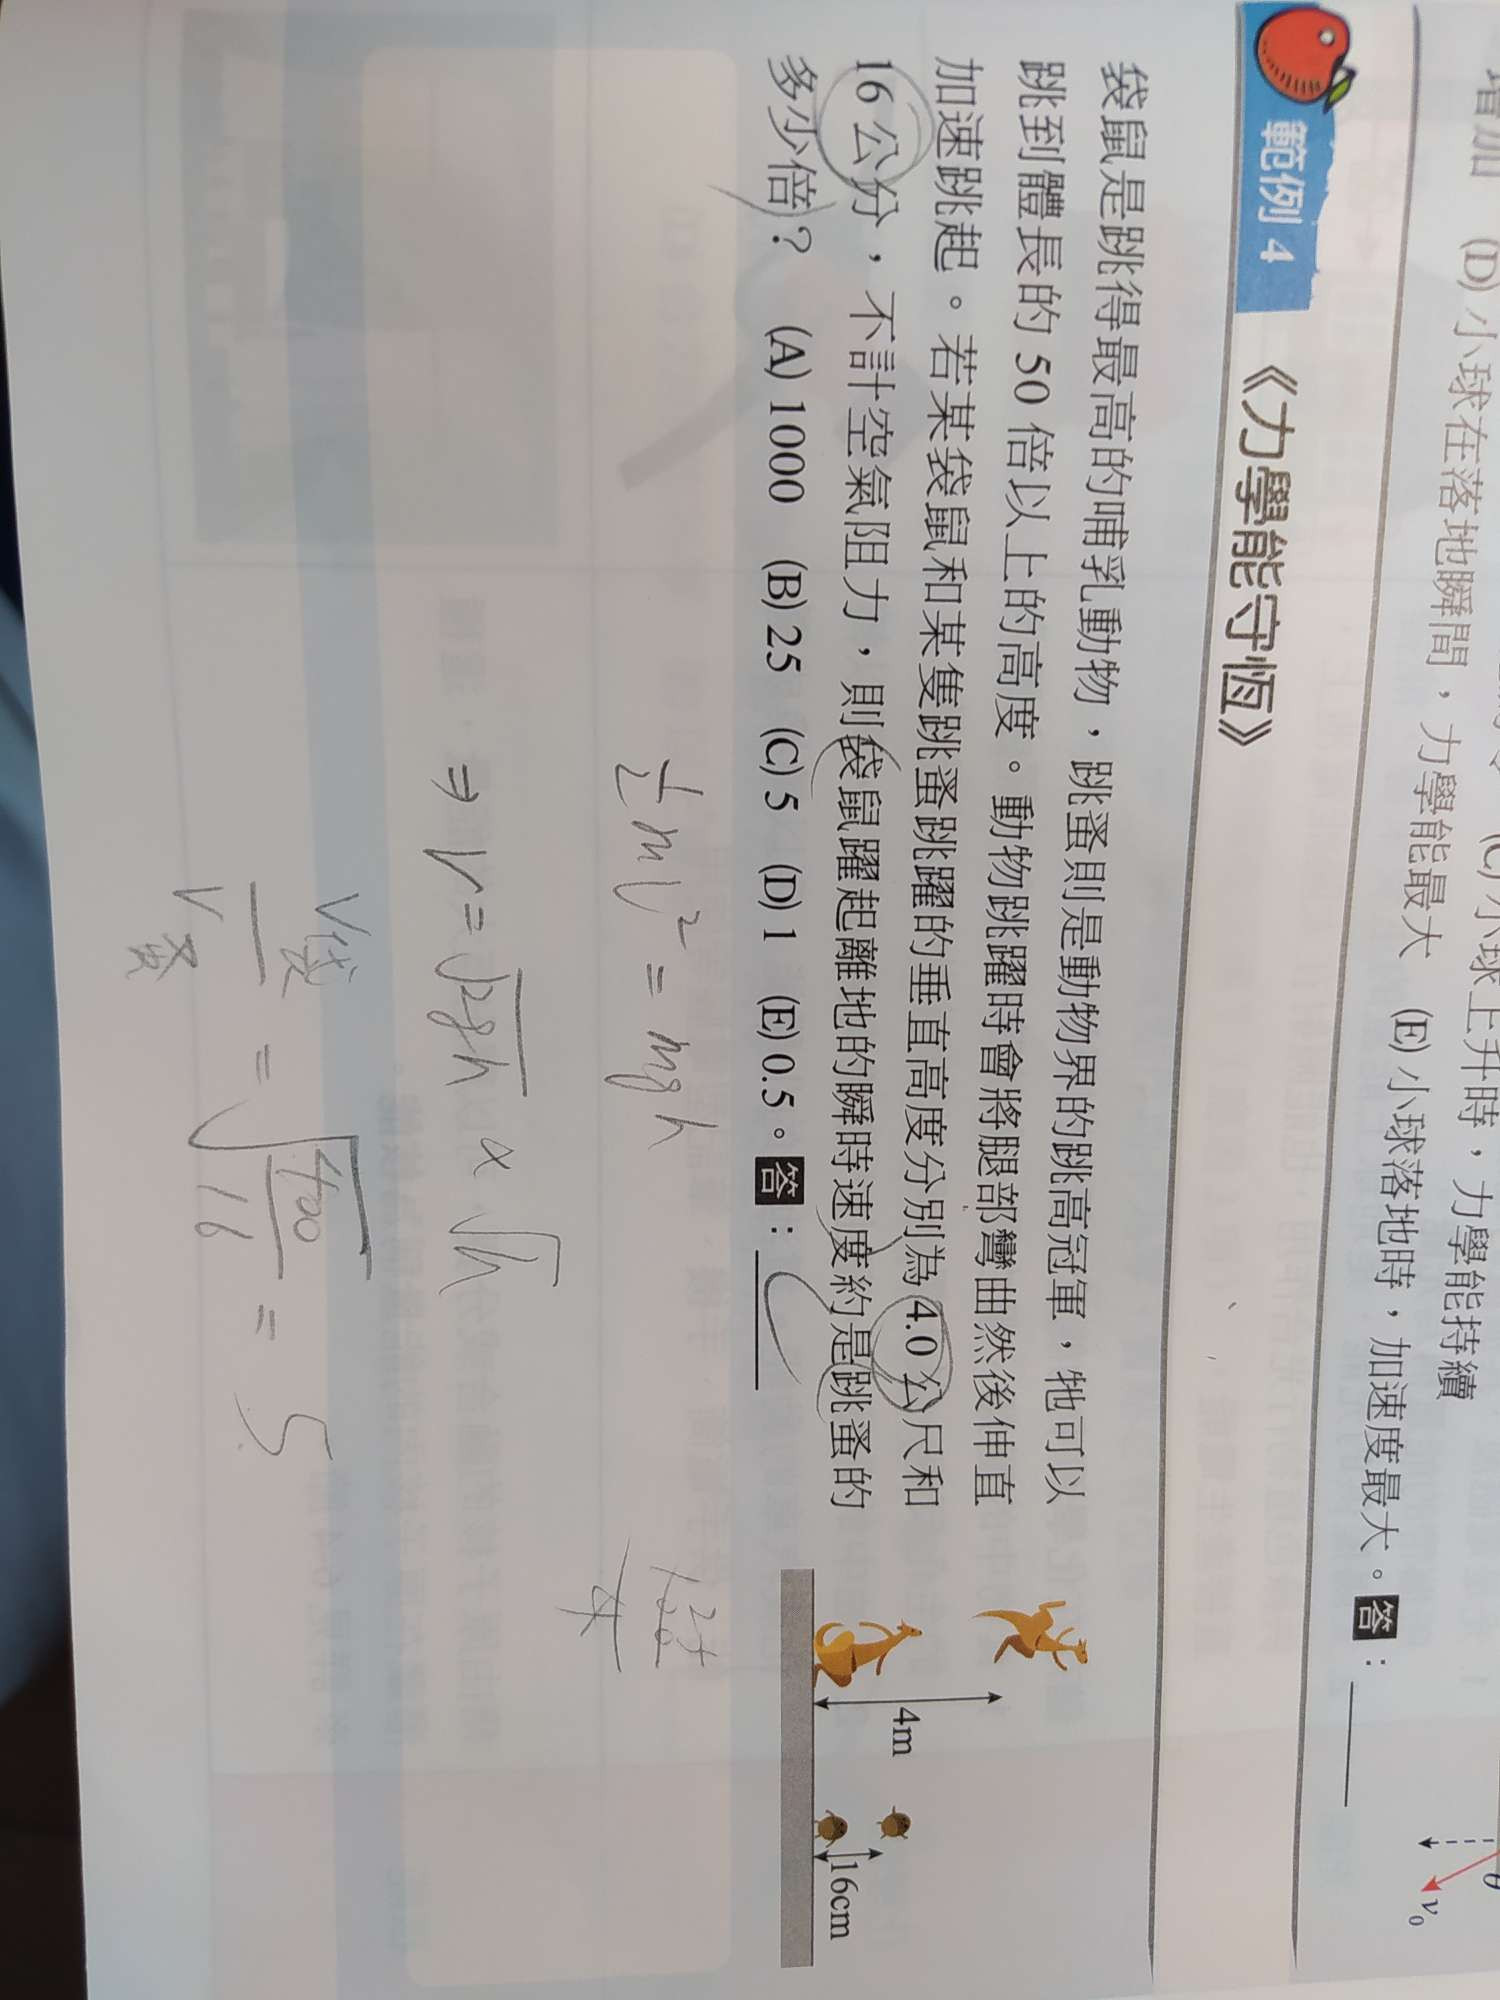 增加 (D) 小球在落地瞬間，力學能最大 (E) 小球落地時，加速度最大。答：
(C) 小球上升時，力學能持續
θ
v₀
範例 4 《力學能守恆》
袋鼠是跳得最高的哺乳動物，跳蚤則是動物界的跳高冠軍，牠可以
跳到體長的 50 倍以上的高度。動物跳躍時會將腿部彎曲然後伸直
加速跳起。若某袋鼠和某隻跳蚤跳躍的垂直高度分別為 4.0 公尺和
16 公分，不計空氣阻力，則袋鼠躍起離地的瞬時速度約是跳蚤的
多少倍？ (A) 1000 (B) 25 (C) 5 (D) 1 (E) 0.5。答：C
4m
16cm
½mv² = mgh
⇒ V = √2gh ∝ √h
V袋/V蚤 = √400/16 = 5